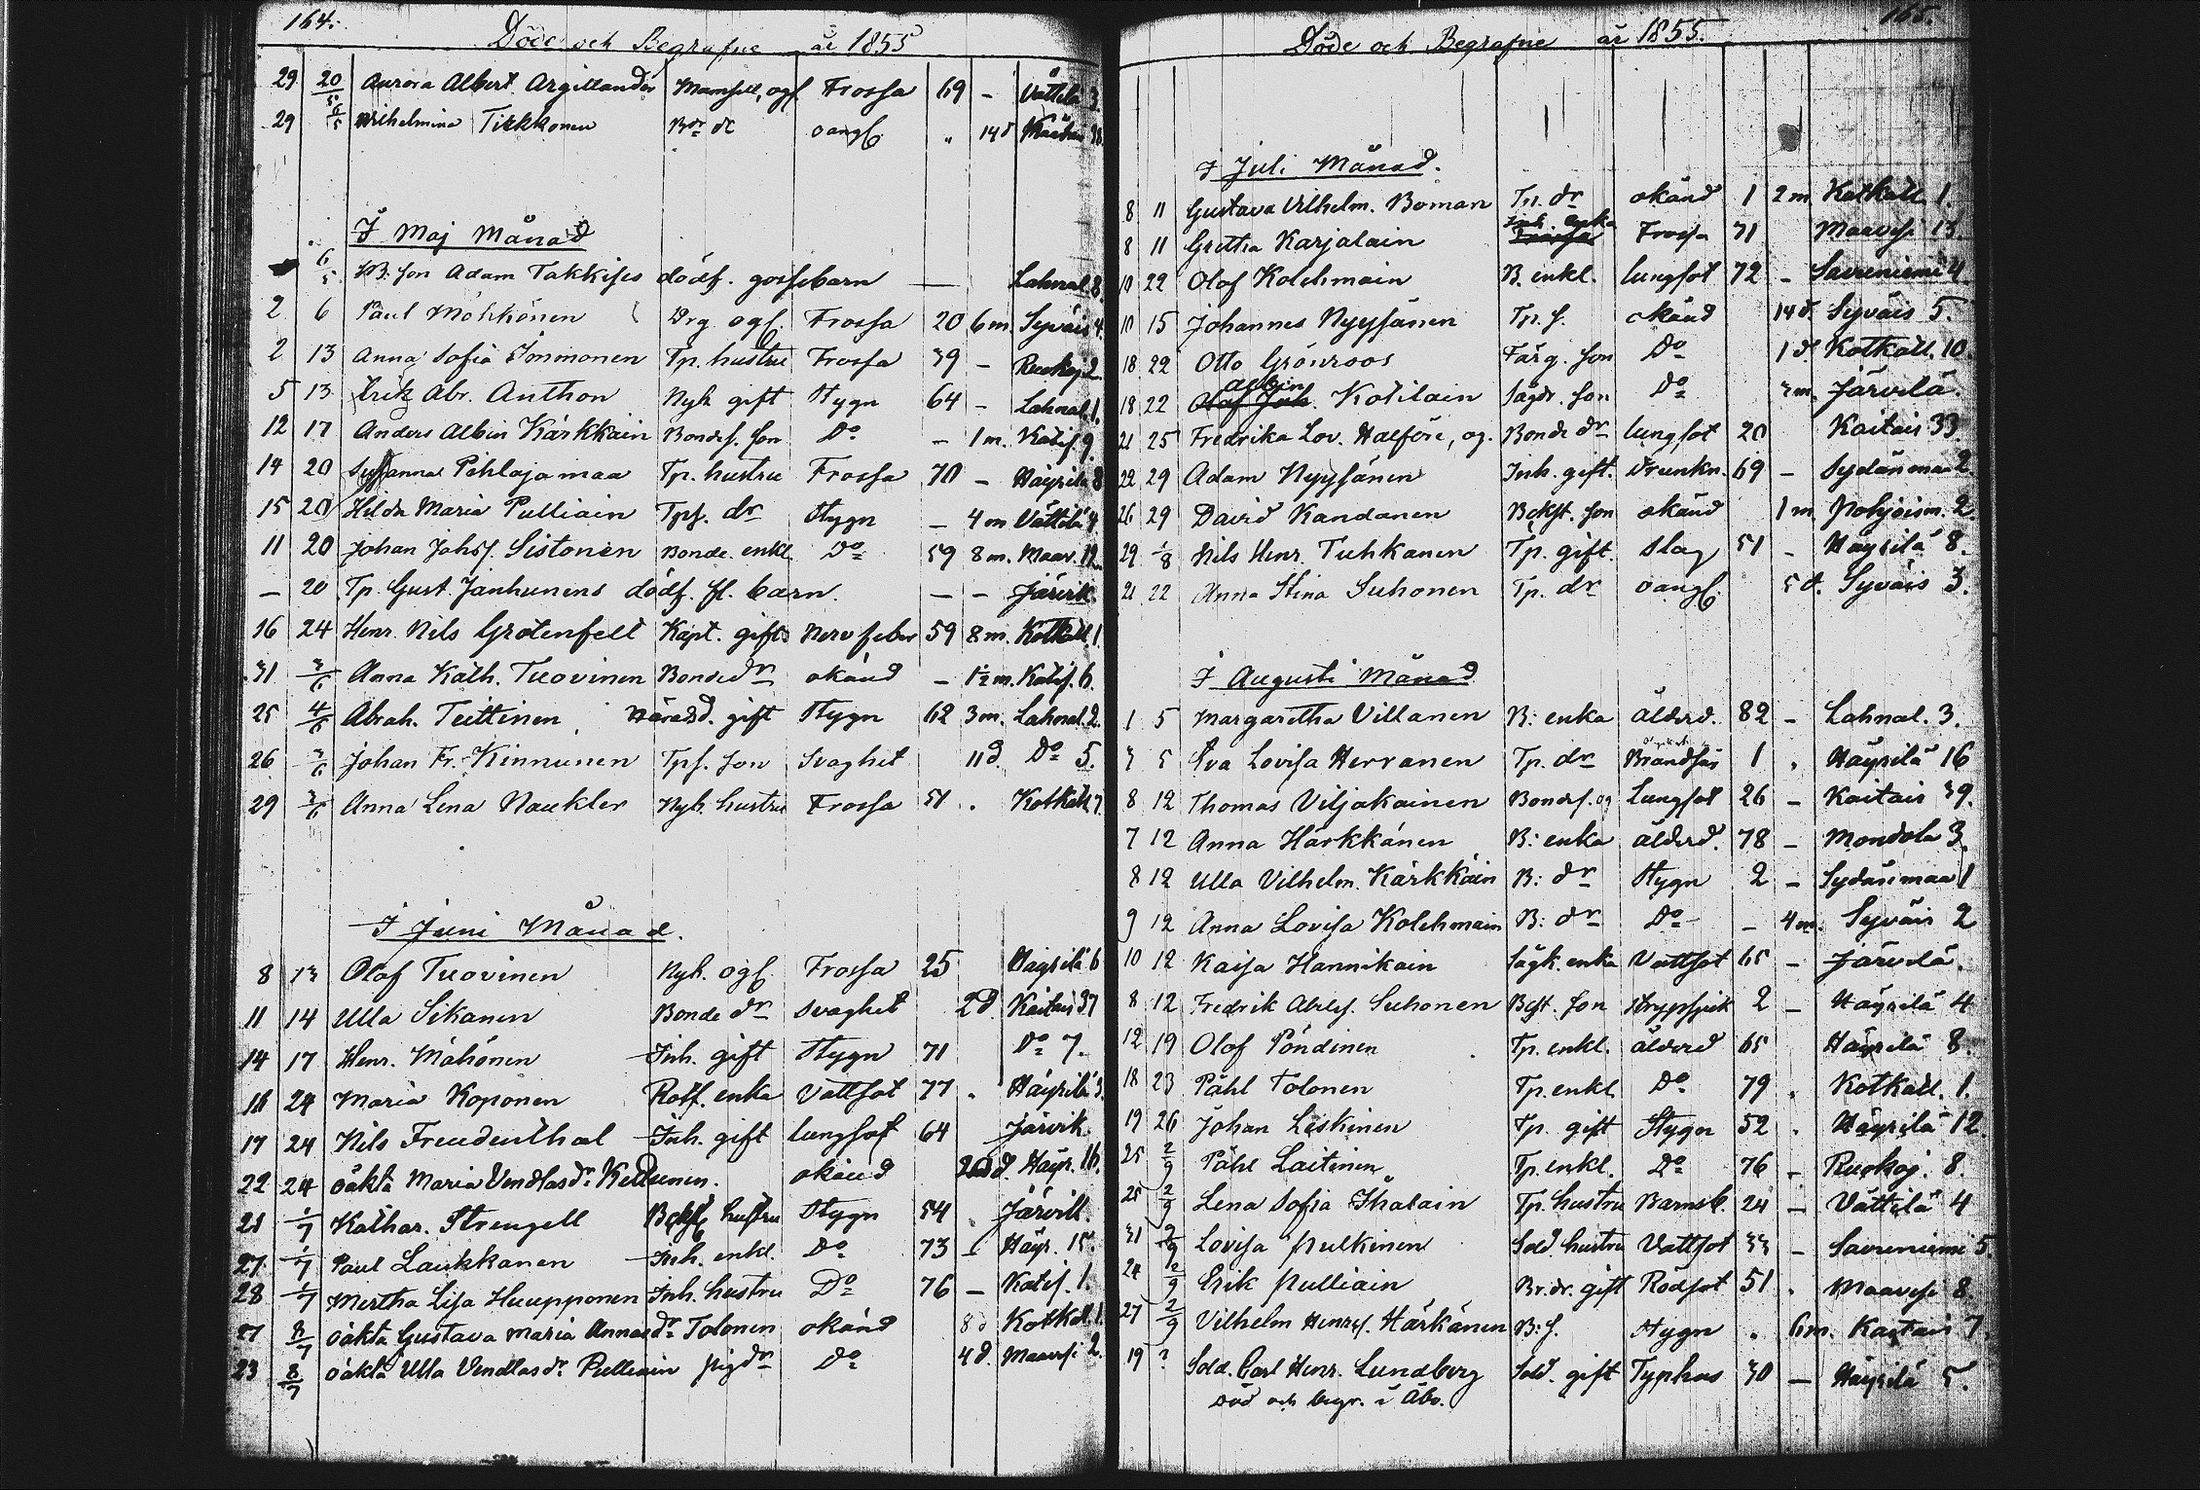 164.
Döde och Begrafne år 1855
29 20/5 Aurora Albert. Argillander Mamsell, ogf. Frossa 69 - Vättilä 3
29 6/5 Wilhelmina Tirkkonen Bdr dr oangf. " 14 d Kaitais
I Maj Månad
6/5 B: son Adam Takkises dödf. gossebarn — Lahnal. 8.
2 6 Paul Möhkönen Drg ogf. Frossa 20 6 m. Syväis 4.
2 13 Anna Sofia Immonen Tp. hustru Frossa 39 - Ruokoj. 2.
5 13 Erik Abr. Anthon Nyb. gift Stygn 64 - Lahnal. 1.
12 17 Anders Albin Kärkkäin Bondes. son Do - 1 m. Katis. 9.
14 20 Susanna Pihlajamaa Tp. hustru Frossa 70 - Häyrilä 8
15 20 Hilda Maria Pulliain Tps. dr Stygn - 4 m Vättilä 4
11 20 Johan Johsf. Sistonen Bonde enkl. Do 59 8 m. Maav. 12.
— 20 Tp. Gust. Janhunens dödf. fl. barn. — - Järvik.
16 24 Henr. Nils Grotenfelt Kapt. gift Nervfeber 59 8 m. Kotkatl. 1.
31 3/6 Anna Kath. Tuovinen Bonde dr okänd - 1½ m. Katis. 6.
25 4/6 Abrah. Teittinen Häradsd. gift Stygn 62 3 m. Lahnal. 2.
26 3/6 Johan Fr. Kinnunen Tps. son Svaghet 11 d. Do 5.
29 3/6 Anna Lena Naukler Nyb. hustru Frossa 51 . Kotkatl. 7.
I Juni Månad.
8 13 Olof Tuovinen Nyb. ogf. Frossa 25 Häyrilä 6
11 14 Ulla Sikanen Bonde dr svaghet 2 d. Kaitais 37
14 17 Henr. Mähönen Inh. gift Stygn 71 Do 7.
18 24 Maria Koponen Rotf. enka Vattsot 77 . Häyrilä 3.
17 24 Nils Freudenthal Inh. gift lungsot 64 Järvik.
22 24 oäkta Maria Vendlasdr. Kettunen. okänd 20 d. Häyr. 16.
21 1/7 Kathar. Strengell Bckst. hustru Stygn 54 . Järvill.
27 1/7 Paul Laukkanen Inh. enkl. Do 73 - Häyr. 15.
28 1/7 Mertha Lisa Huupponen Inh. hustru Do 76 - Katis. 1.
27 8/7 oäkta Gustava Maria Annasdr Tolonen okänd 8 d Kotkatl. 1.
23 8/7 oäkta Ulla Vendlasdr. Pulliain pigdr Do 4 d. Maaves. 2.
165.
Döde och Begrafne år 1855.
I Juli Månad.
8 11 Gustava Vilhelm. Boman Tp. dr okänd 1 2 m. Kotkatl. 1.
8 11 Gretha Karjalain Inh. enka Frossa 71 Maavesi 13.
10 22 Olof Kolehmain B. enkl. lungsot 72 - Savuniemi 4.
10 15 Johannes Nyyssänen Tp. s. okänd 14 d. Syväis 5.
18 22 Otto Grönroos Färg. son Do 1 d Kotkatl. 10.
18 22 Albin Kotilain Sågdr. son Do 3 m. Järvilä.
21 25 Fredrika Lov. Halfóre, og. Bonde dr lungsot 20 Kaitais 33.
22 29 Adam Nyyssänen Inh. gift. drunkn. 69 - Sydänmaa 2.
26 29 David Kandanen Bckst. son okänd 1 m. Pohjoism. 2.
29 1/8 Nils Henr. Tuhkanen Tp. gift slag 51 - Häyrilä 8.
21 22 Anna Stina Suhonen Tp. dr oangf. 5 d. Syväis 3.
I Augusti Månad
1 5 Margaretha Villanen B: enka ålderd. 82 - Lahnal. 3.
3 5 Eva Lovisa Herranen Tp. dr Brandsår 1 . Häyrilä 16
8 12 Thomas Viljakainen Bondes. og Lungsot 26 - Kaitais 39.
7 12 Anna Härkkänen B: enka ålderd. 78 - Mondola 3.
8 12 Ulla Vilhelm. Kärkkäin B: dr Stygn 2 - Sydänmaa 1
9 12 Anna Lovisa Kolehmain B: dr Do - 4 m. Syväis 2
10 12 Kaisa Hannikain Sågk. enka Vattsot 65 - Järvilä.
8 12 Fredrik Abrsf. Suhonen Bckst. son strypsjuk 2 - Häyrilä 4
12 19 Olof Pöndinen Tp. enkl. ålderd 65 Häyrilä 8.
18 23 Påhl Tolonen Tp. enkl Do 79 . Kotkatl. 1.
19 26 Johan Leskinen Tp. gift Stygn 52 . Häyrilä 12.
25 2/9 Påhl Laitinen Tp. enkl. Do 76 - Ruokoj. 8.
25 2/9 Lena Sofia Ihalain Tp. hustru Barnsb. 24 - Vättilä 4
31 2/9 Lovisa Pulkinen Sold. hustru Vattsot 33 - Savuniemi 5.
24 2/9 Erik Pulliain Br.dr. gift Rödsot 51 . Maavesi 8.
27 2/9 Vilhelm Henrsf. Härkänen B: s. Stygn . 6 m. Kaitais 7.
19 ? Sold. Carl Henr. Lundberg Sold. gift Typhus 30 — Häyrilä 5.
död och begr. i Åbo.